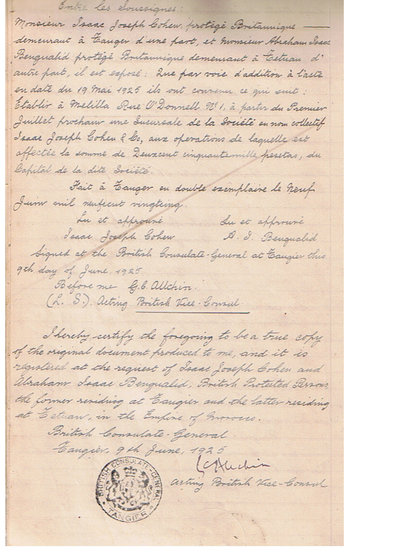 Entre les Soussignés:
Monsieur Isaac Joseph Cohen, protégé Britannique
demeurant à Tanger d'une part, et Monsieur Abraham Isaac
Bengualid protégé Britannique demeurant à Tetuan d'
autre part, il est exposé: Que par voie d'addition à l'acte
en date du 19 Mai 1925 ils ont convenu ce qui suit:
Etablir à Melilla Rue O'Donnell Nº 1, à partir du Premier
Juillet prochain une Sucursale de la Société en nom collectif
Isaac Joseph Cohen & Co, aux operations de laquelle est
affectée la somme de Deux cent cinquante mille pesetas, du
Capital de la dite Société.
Fait à Tanger en double exemplaire le Neuf
Juin mil neufcent vingtcinq.
Lu et approuvé Lu et approuvé
Isaac Joseph Cohen A. I. Bengualid
Signed at the British Consulate-General at Tangier this
9th day of June, 1925.
Before me G.C. Allchin.
(L. S.) Acting British Vice-Consul
I hereby certify the foregoing to be a true copy
of the original document produced to me, and it is
registered at the request of Isaac Joseph Cohen and
Abraham Isaac Bengualid, British Protected Persons
the former residing at Tangier and the latter residing
at Tetuan, in the Empire of Morocco.
British Consulate-General
Tangier, 9th June, 1925
GCAllchin
Acting British Vice-Consul
BRITISH CONSULATE-GENERAL
TANGIER